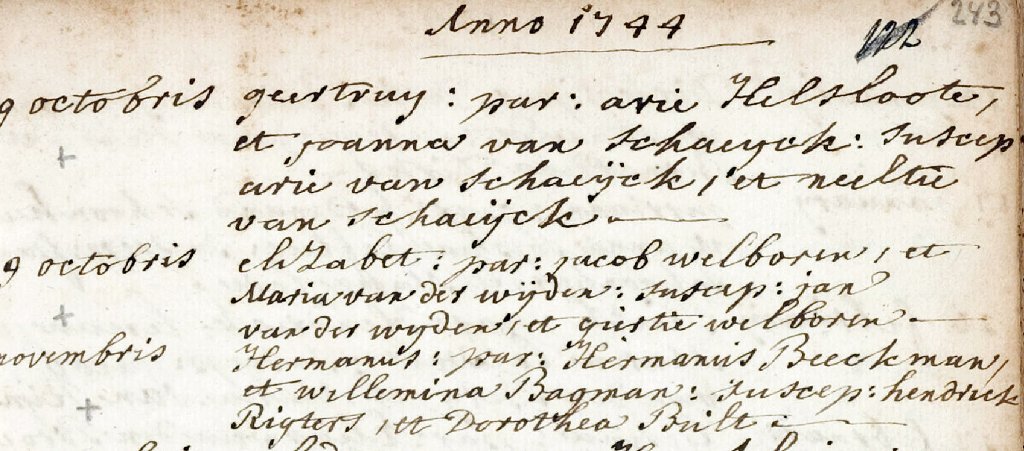 Anno 1744
122 243
9 octobris geertruy: par: arie Helsloote,
et joanna van schaeyck: suscep
arie van schaeijck, et neeltie
van schaeijck.
9 octobris elizabet: par: jacob welboren, et
Maria van der wijden: suscep: jan
van der wyden, et giertie welboren.
novembris Hermanus: par: Hermanus Beeckman,
et willemina Bagman: suscep: hendrick
Rigters, et Dorothea Bult.